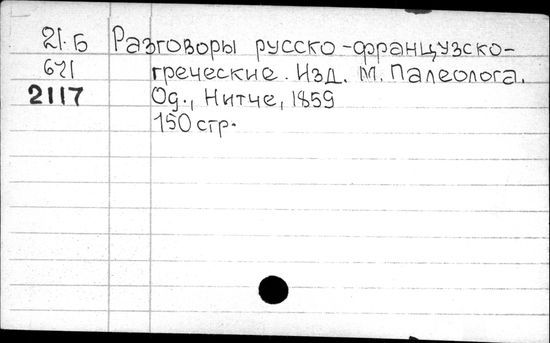 21.Б Разговоры русско-французско-
621 греческие. Изд. М. Палеолога.
2117 Од., Нитче, 1859
150 стр.